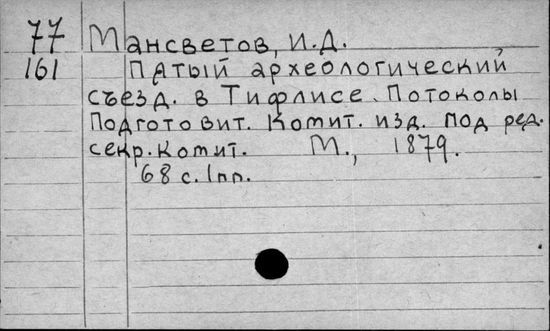 77 Мансветов, И.Д.
161 Пятый археологический
съезд. в Тифлисе. Потоколы
Подготовит. Комит. изд. под ред.
секр. Комит. М., 1879.
68 с. 1 пп.